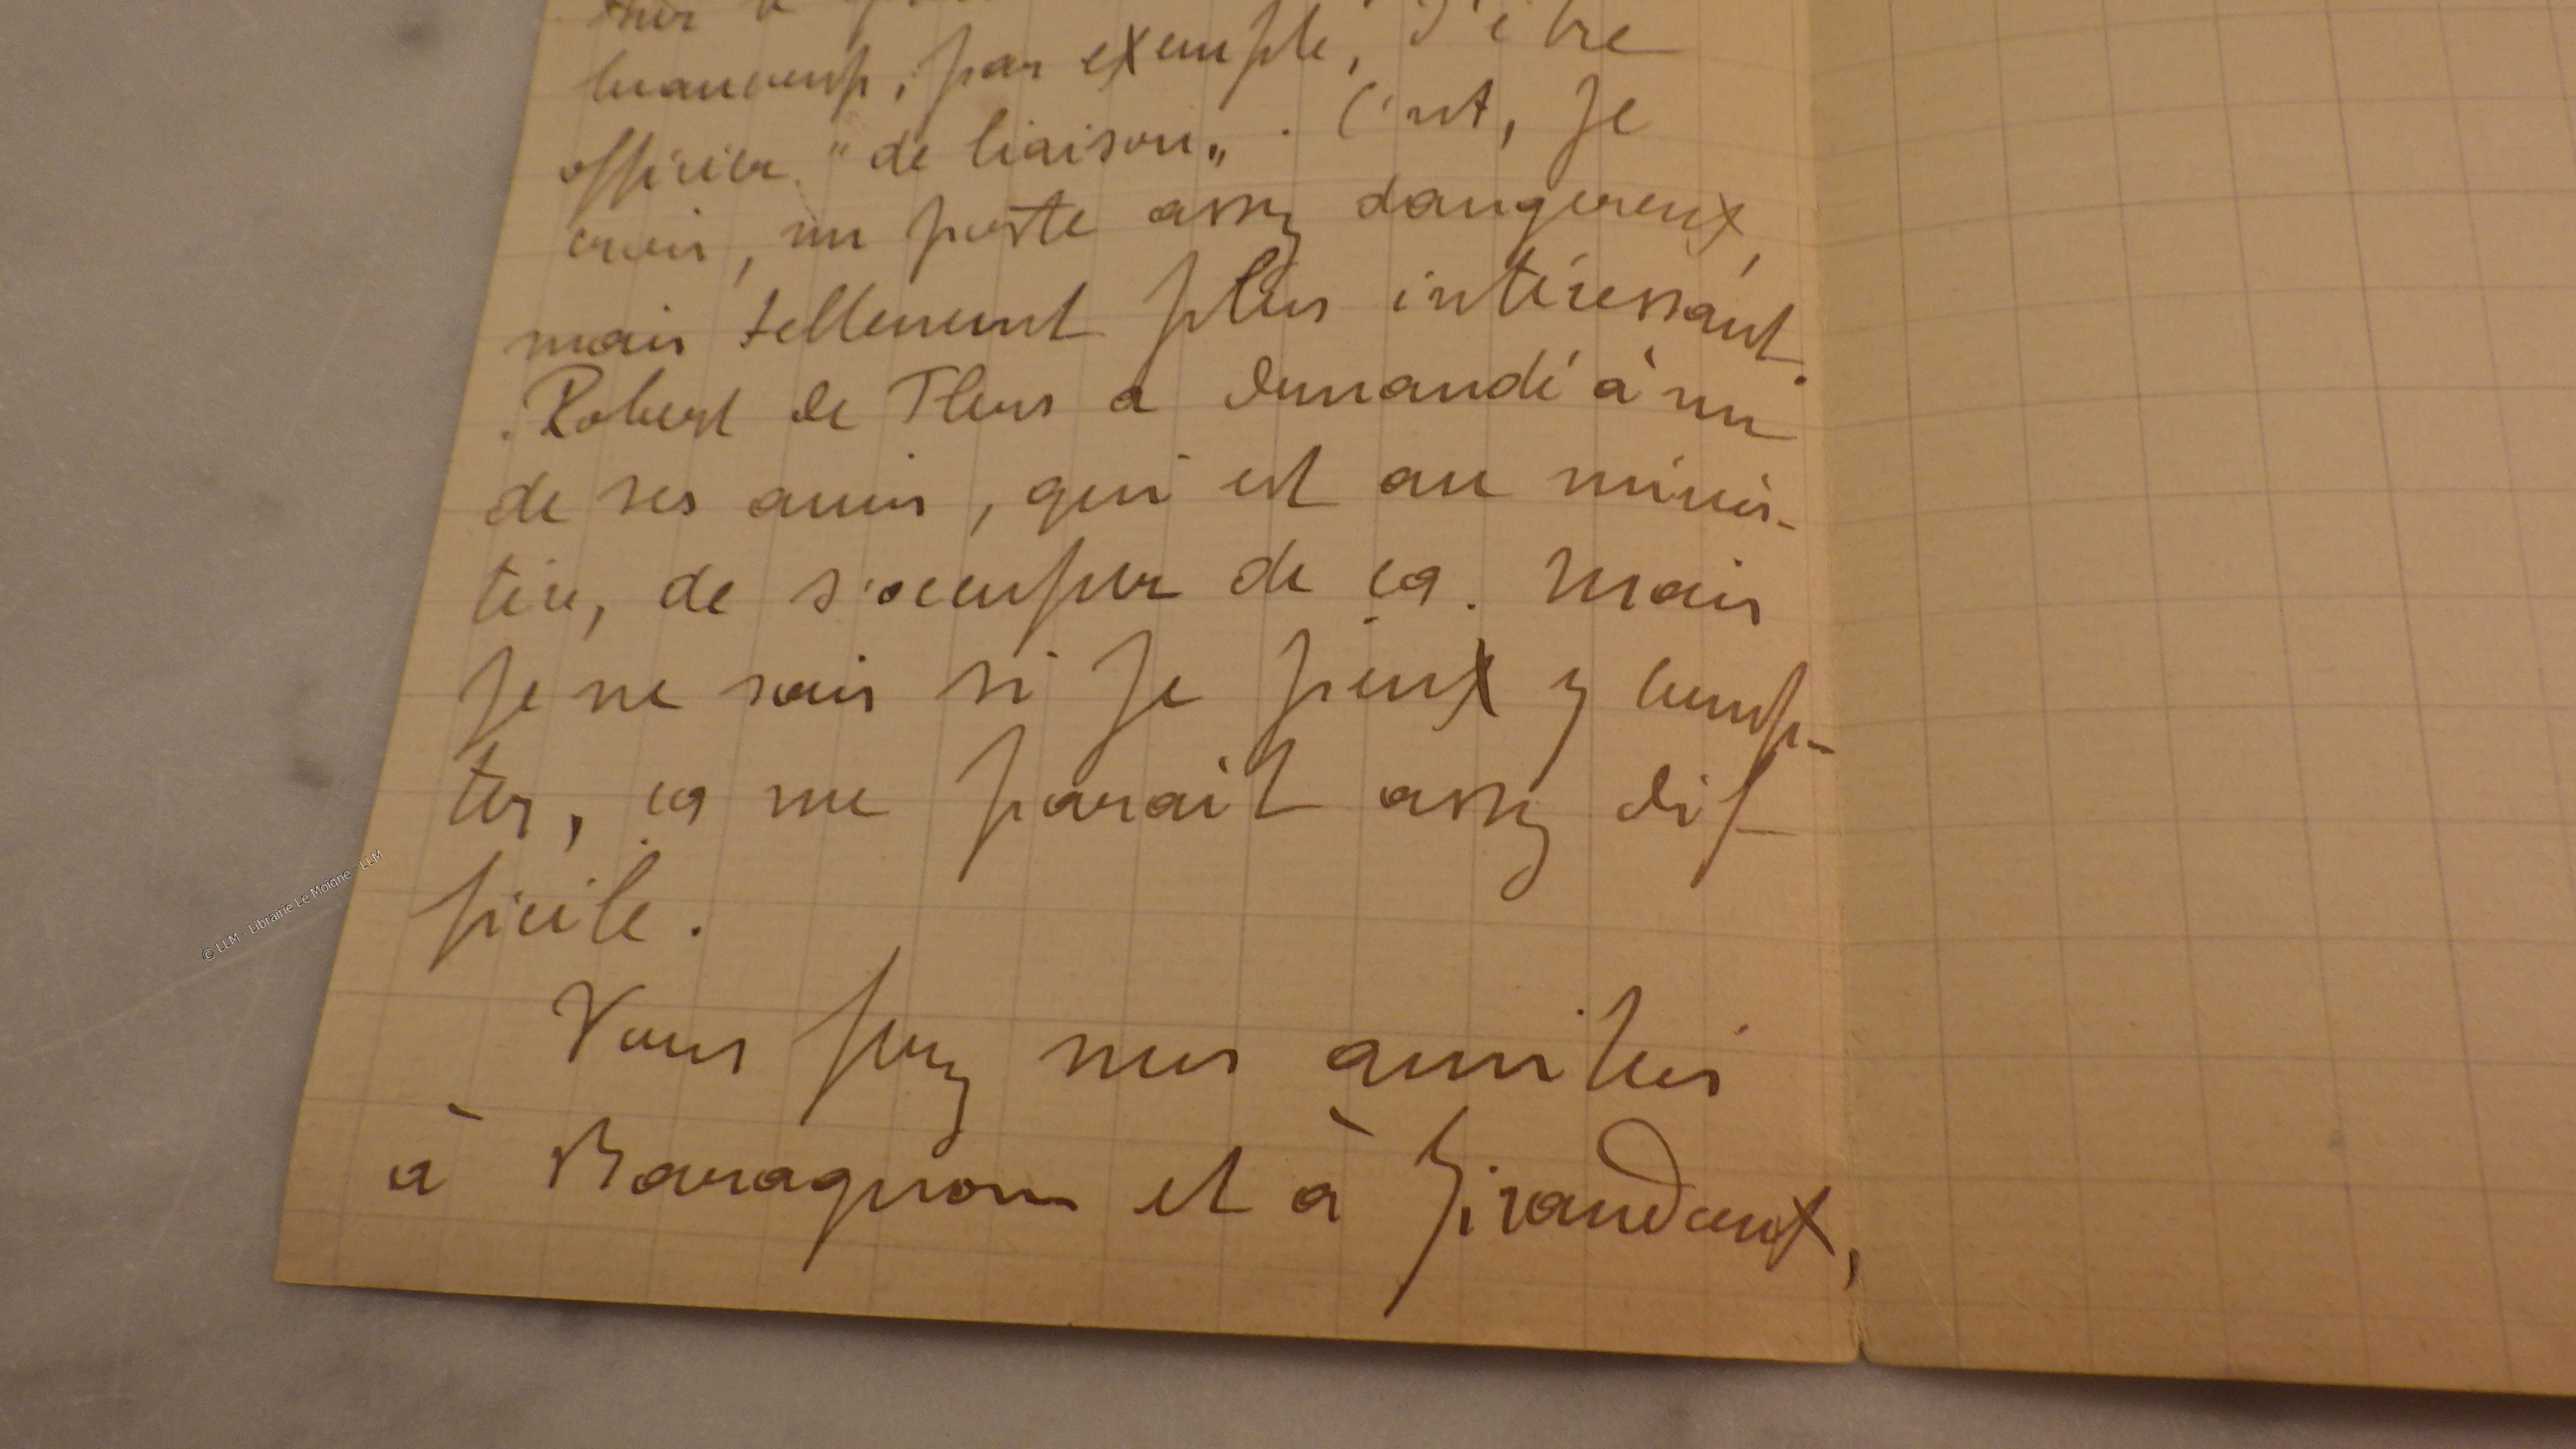 beaucoup, par exemple, d'être
officier "de liaison„. C'est, je
crois, un poste assez dangereux,
mais tellement plus intéressant.
. Robert de Flers a demandé à un
de ses amis, qui est au minis-
tère, de s'occuper de ça. Mais
je ne sais si je peux y comp-
ter, ça me parait assez dif
ficile.
Vous ferez mes amitiés
à Baragnon et à Giraudoux,
© LLM - Librairie Le Moigne - LLM